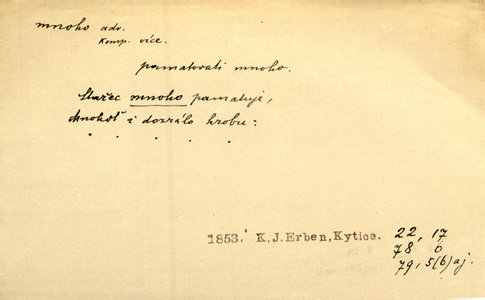 mnoho adv.
Komp. více.
pamatovati mnoho.
Stařec mnoho pamatuje,
Mnohoť i dozrálo hrobu:
. . . . .
1853. K.J.Erben, Kytice.
22, 17
78 6
79, 5(6) aj.